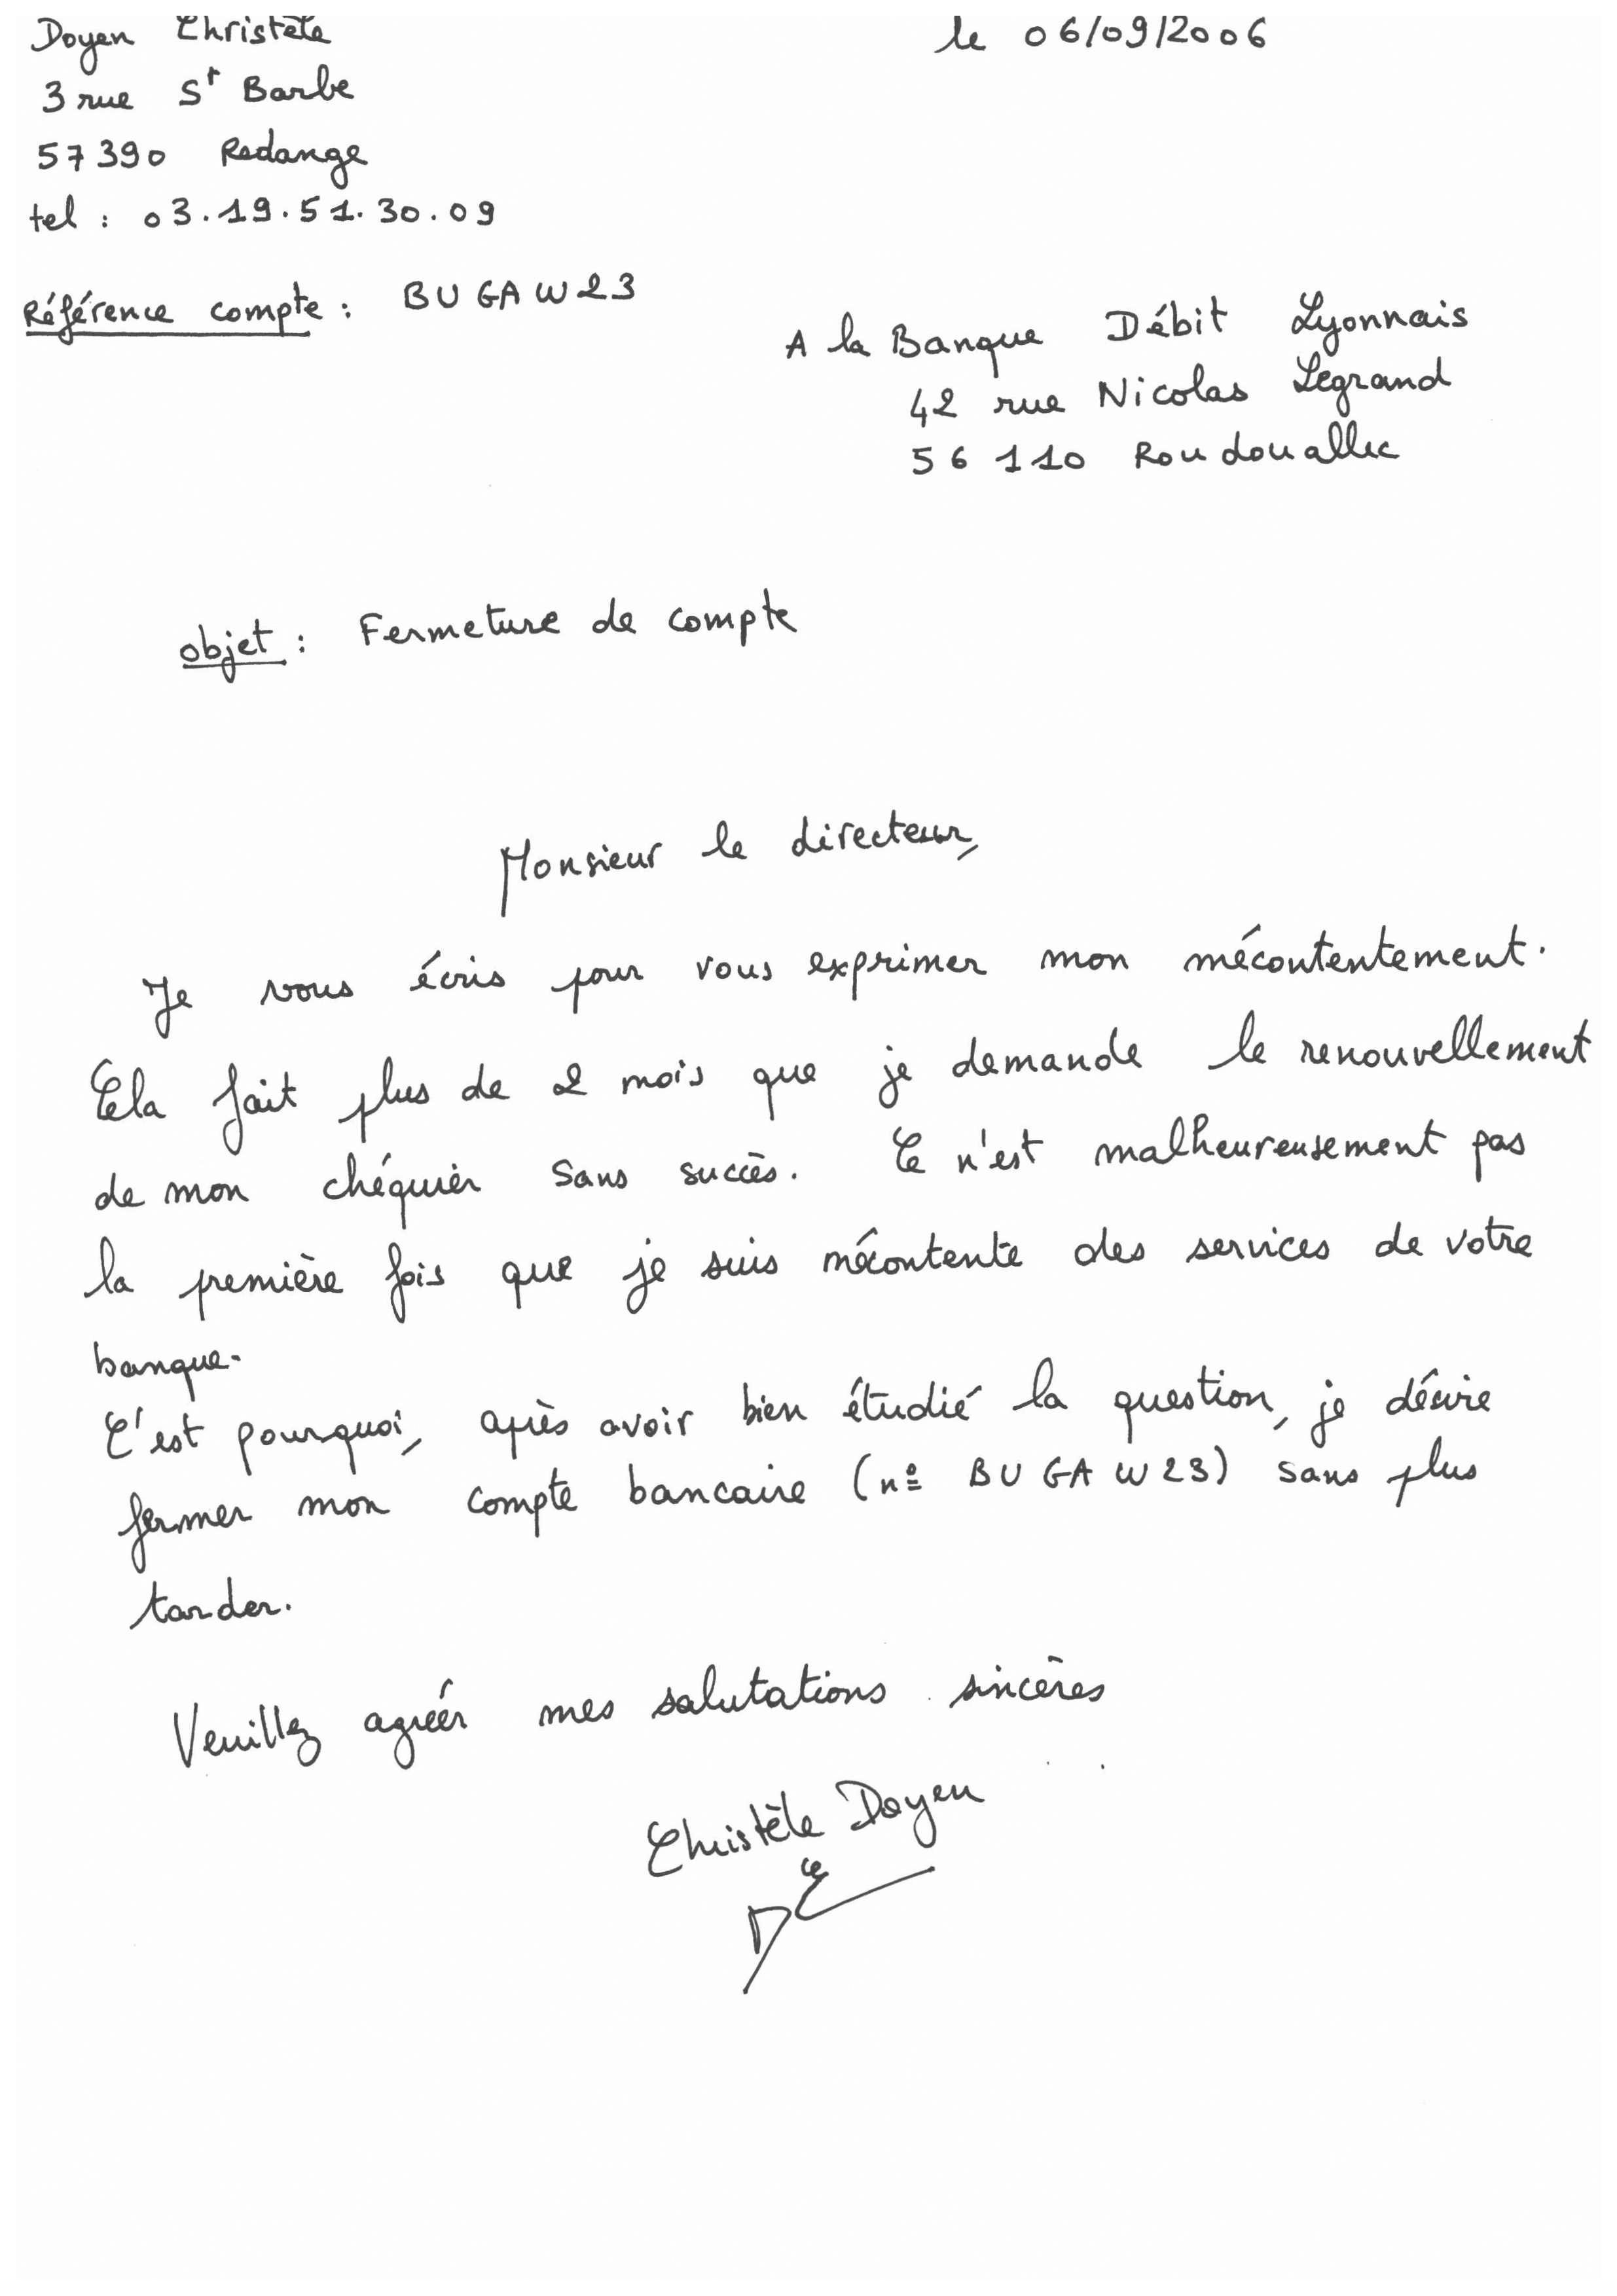 Doyen Christèle
le 06/09/2006
3 rue St Barbe
57390 Redange
tel : 03.19.51.30.09
Référence compte : BUGAW23
A la Banque Débit Lyonnais
42 rue Nicolas Legrand
56110 Roudouallec
objet : Fermeture de compte
Monsieur le directeur,
Je vous écris pour vous exprimer mon mécontentement.
Cela fait plus de 2 mois que je demande le renouvellement
de mon chéquier sans succès. Ce n'est malheureusement pas
la première fois que je suis mécontente des services de votre
banque.
C'est pourquoi, après avoir bien étudié la question, je désire
fermer mon compte bancaire (nº BUGAW23) sans plus
tarder.
Veuillez agréér mes salutations sincères
Christèle Doyen